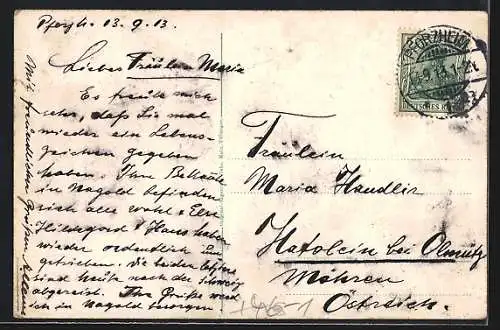 Pforzh. 13.9.13.
Liebes Fräulein Maria
Es freute mich
sehr, daß Sie mal
wieder ein Lebens-
zeichen gegeben
haben. Ihre
in Nagold befinden
sich alle wohl
Hildegard & Hans haben
wieder ordentlich
getrieben. Die beiden
sind heute nach der Schweiz
abgereist. Ihre Grüße werd
ich in Nagold besorgen
Mit freundlichen Grüßen
PFORZHEIM
DEUTSCHES REICH
Fräulein
Maria Handlir
Hatolein bei Olmütz
Mähren
Östreich.